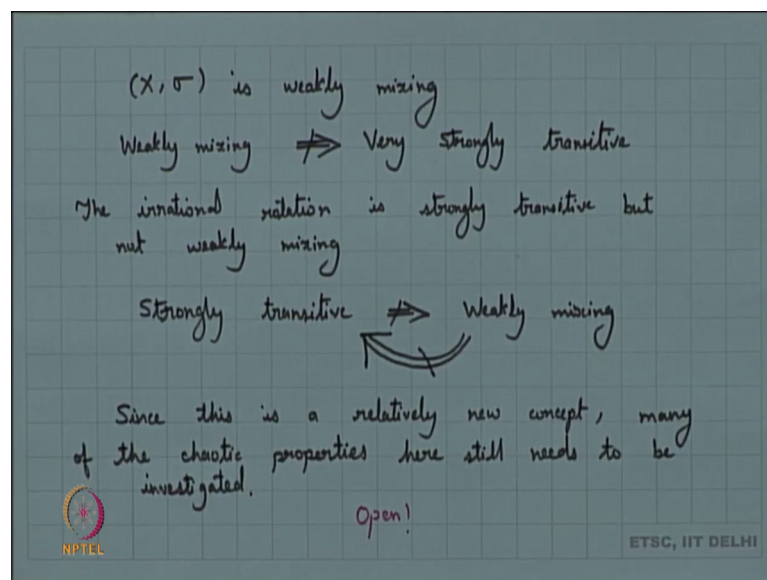 (X, σ) is weakly mixing
Weakly mixing ⇏ Very strongly transitive
The irrational rotation is strongly transitive but
nut weakly mixing
Strongly transitive ⇏ Weakly mixing
Since this is a relatively new concept, many
of the chaotic properties here still needs to be
investigated.
Open!
NPTEL
ETSC, IIT DELHI